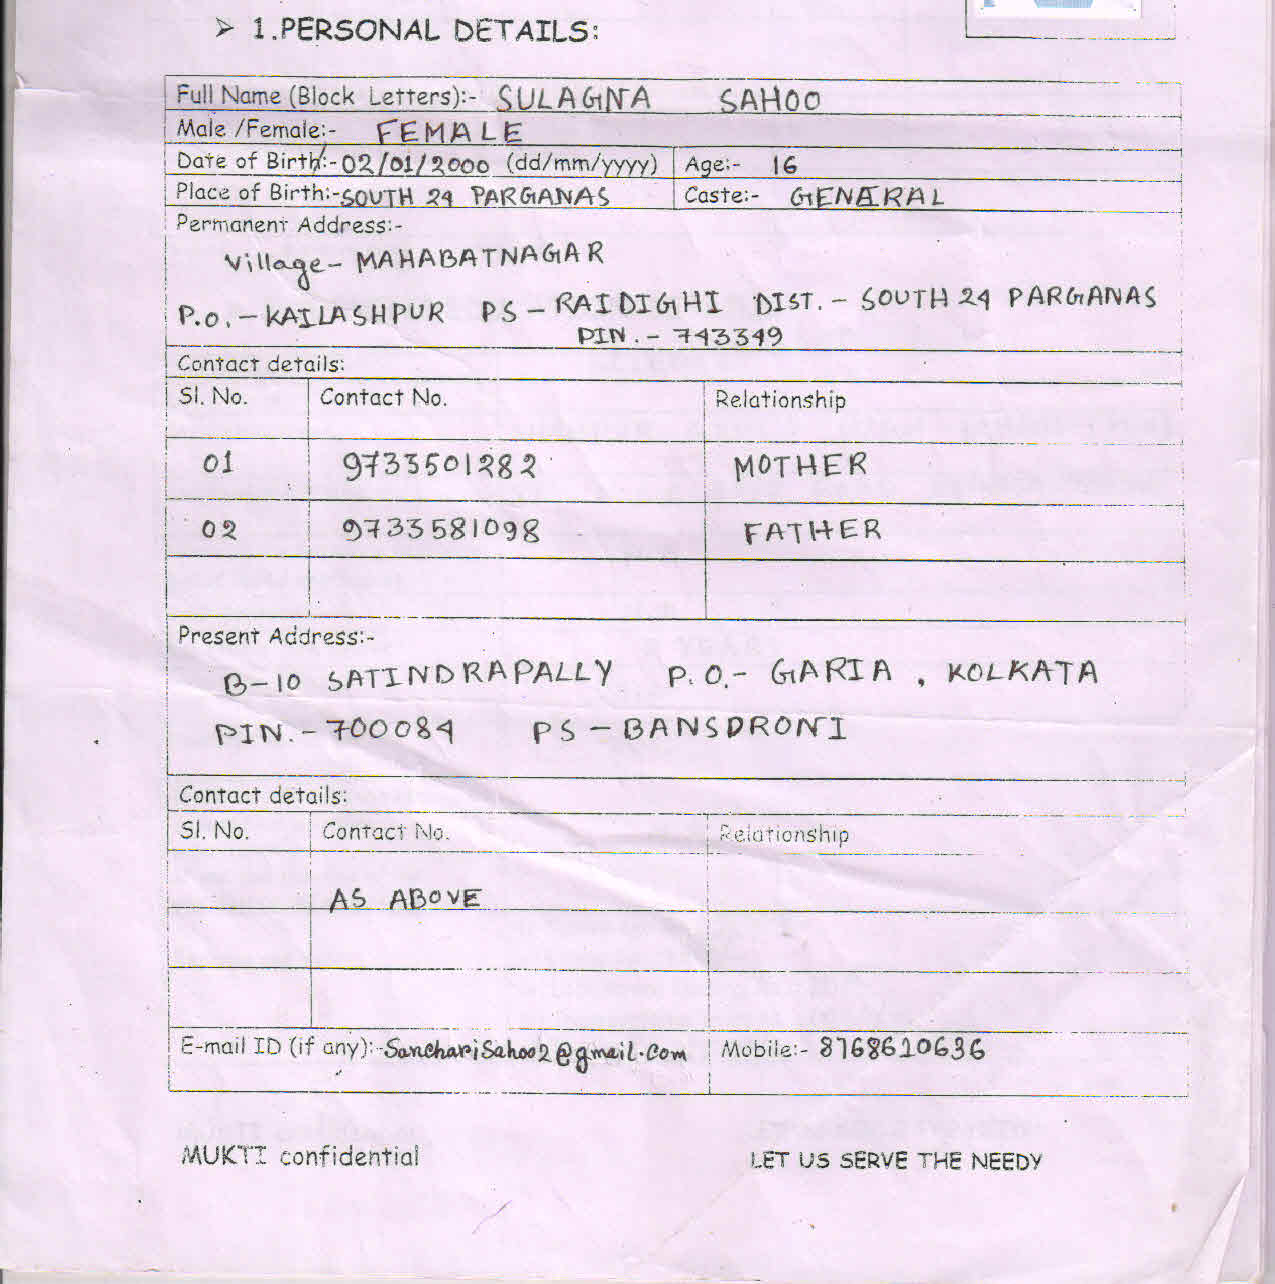 ➢ 1.PERSONAL DETAILS:
Full Name (Block Letters):- SULAGNA SAHOO
Male /Female:- FEMALE
Date of Birth:- 02/01/2000 (dd/mm/yyyy) Age:- 16
Place of Birth:- SOUTH 24 PARGANAS Caste:- GENERAL
Permanent Address:-
Village- MAHABATNAGAR
P.O.- KAILASHPUR PS - RAIDIGHI DIST. - SOUTH 24 PARGANAS
PIN. - 743349
Contact details:
Sl. No. Contact No. Relationship
01 9733501282 MOTHER
02 9733581098 FATHER
Present Address:-
B-10 SATINDRAPALLY P.O.- GARIA , KOLKATA
PIN.- 700084 PS - BANSDRONI
Contact details:
Sl. No. Contact No. Relationship
AS ABOVE
E-mail ID (if any):- SanchariSahoo2@gmail.com Mobile:- 8768610636
MUKTI confidential LET US SERVE THE NEEDY